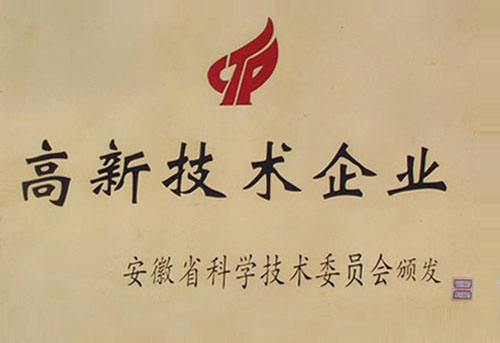 高新技术企业
安徽省科学技术委员会颁发